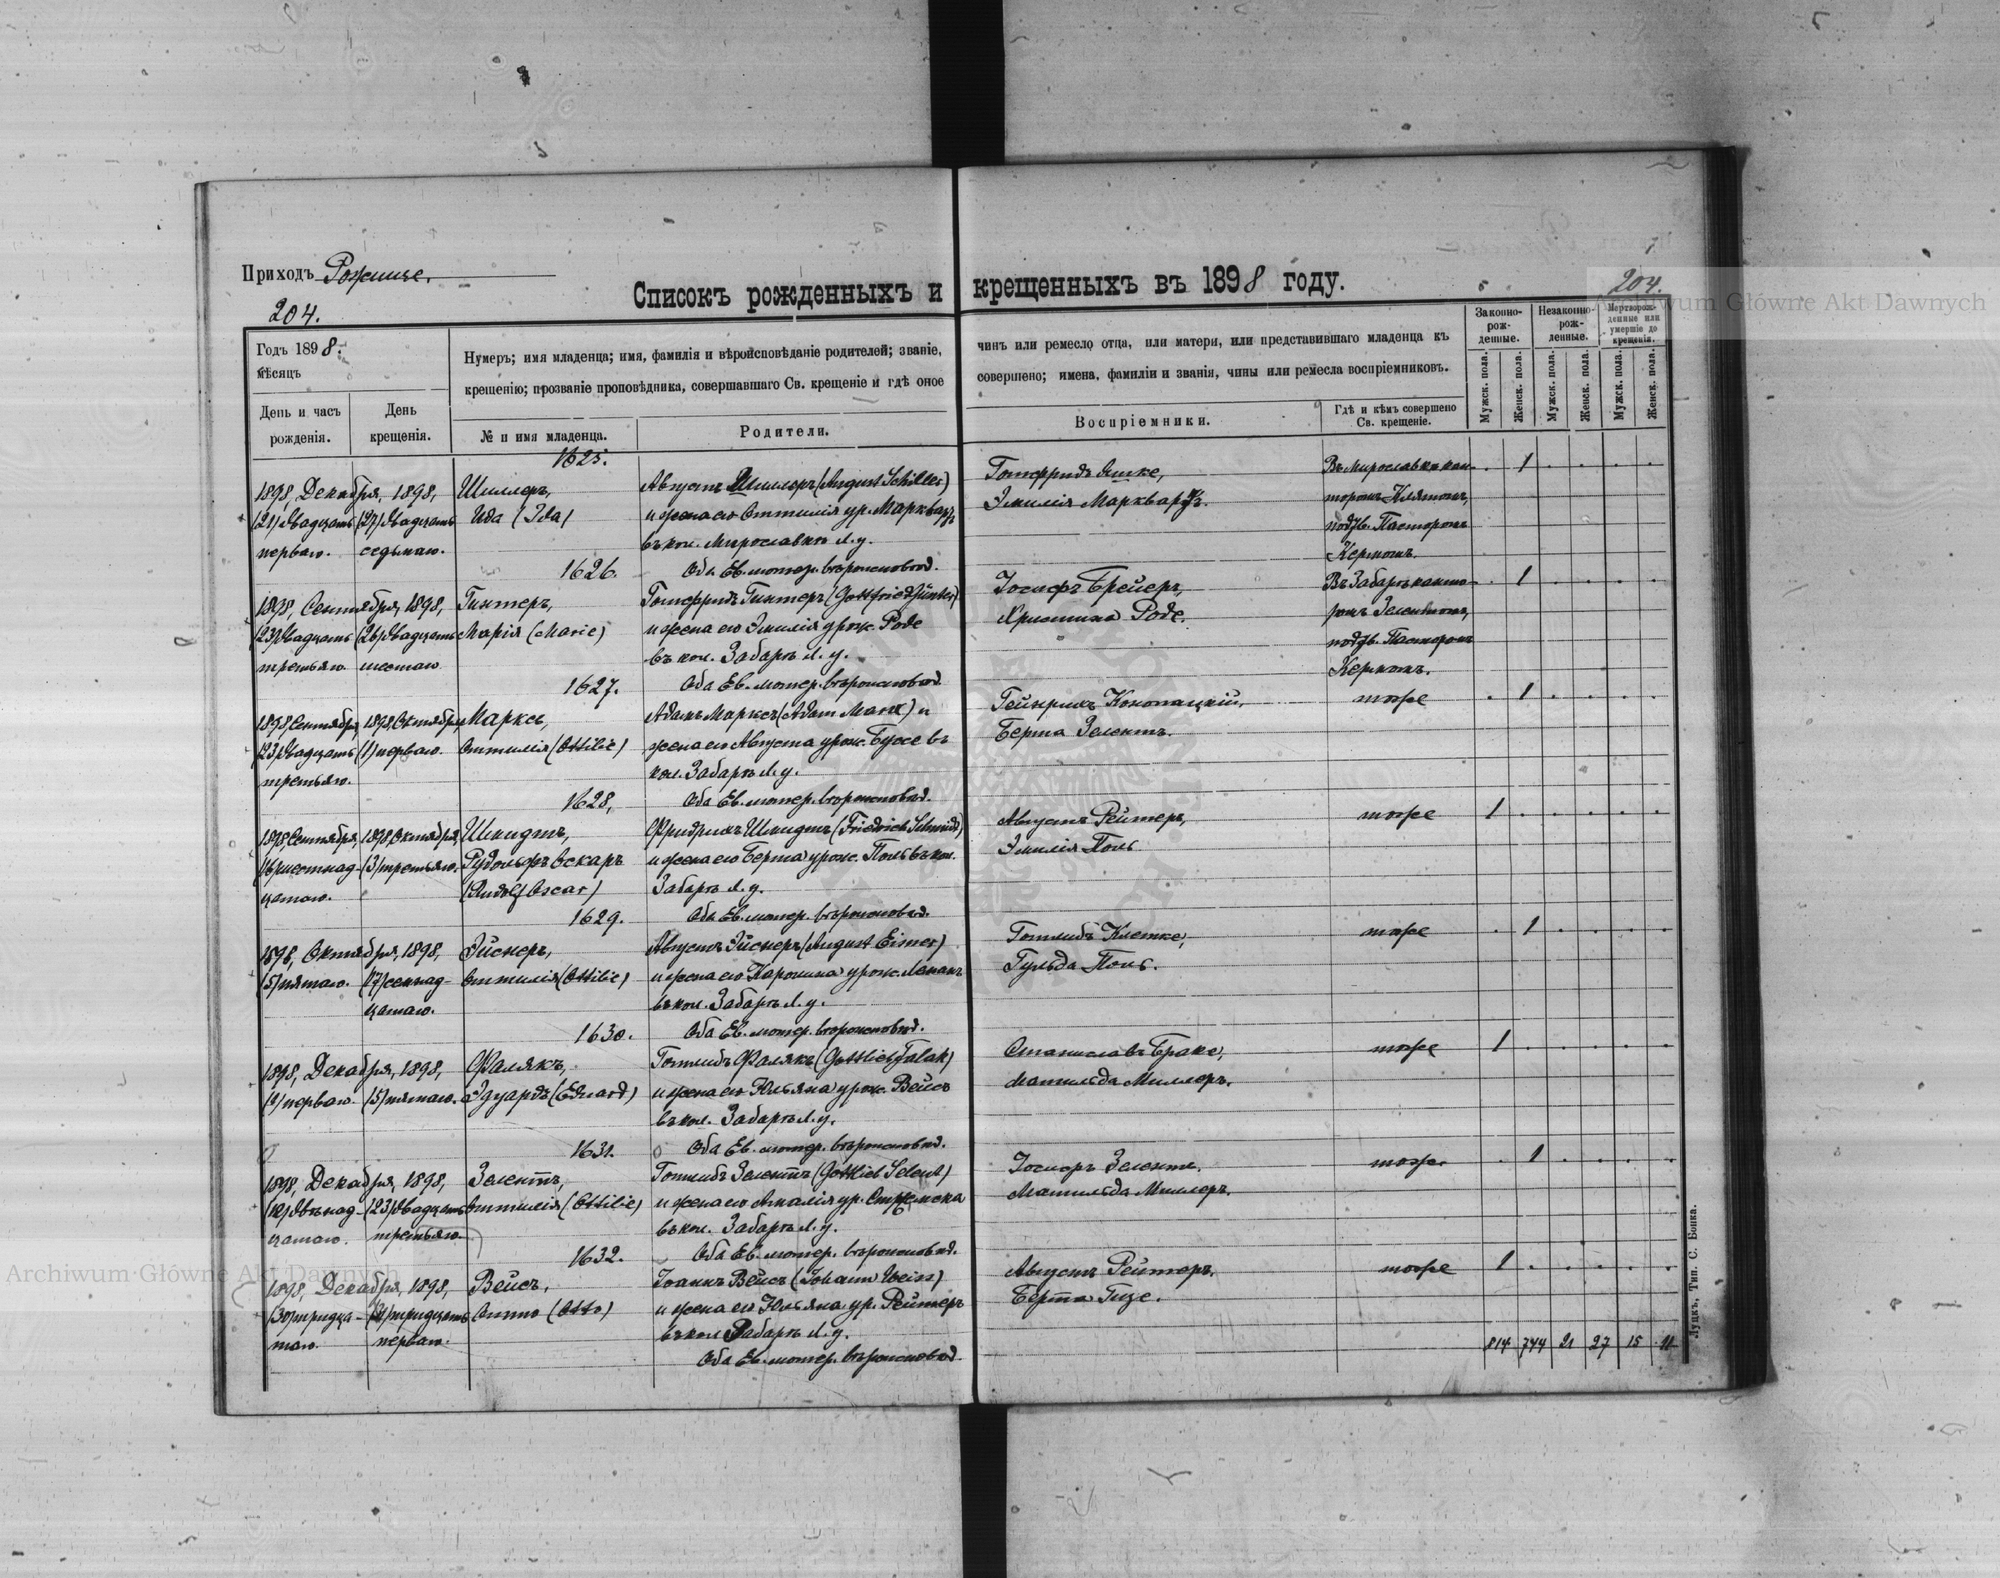 Приходъ Рожище.
204.
204.
Archiwum Główne Akt Dawnych
Списокъ рожденныхъ и крещенныхъ въ 1898 году.
Годъ 1898.
мѣсяцъ
День и часъ рожденія.
День крещенія.
Нумеръ; имя младенца; имя, фамилія и вѣроисповѣданіе родителей; званіе, чинъ или ремесло отца, или матери, или представившаго младенца къ
крещенію; прозваніе проповѣдника, совершавшаго Св. крещеніе и гдѣ оное совершено; имена, фамиліи и званія, чины или ремесла воспріемниковъ.
№ и имя младенца.
Родители.
Воспріемники.
Гдѣ и кѣмъ совершено Св. крещеніе.
Законно-рож-денные.
Незаконно-рож-денные.
Мертворож-денные или умершіе до крещенія.
Мужск. пола.
Женск. пола.
Мужск. пола.
Женск. пола.
Мужск. пола.
Женск. пола.
1625.
1898, Декабря, 1898,
(21) двадцать (27) двадцать
перваго. седьмаго.
Шиллеръ,
Ида (Ida)
Августъ Шиллеръ (August Schiller)
и жена его Оттилія ур. Марквардъ
въ кол. Мирославкѣ Л. у.
Оба Ев. лютер. вѣроисповѣд.
Готфридъ Яшке,
Эмилія Марквардъ.
Въ Мирославкѣ кан-
торомъ Клятомъ,
подтв. Пасторомъ
Керномъ.
1
1626.
1898, Сентября, 1898,
(23) двадцать (26) двадцать
третьяго. шестаго
Гинтеръ,
Марія (Marie)
Готфридъ Гинтеръ (Gottfried Günter)
и жена его Эмилія урож. Роде
въ кол. Забарѣ Л. у.
Оба Ев. лютер. вѣроисповѣд.
Іосифъ Брейеръ,
Христина Роде.
Въ Забарѣ канто-
ромъ Зелентомъ,
подтв. Пасторомъ
Керномъ.
1
1627.
1898, Сентября, 1898, Октября,
(23) двадцать (1) перваго.
третьяго.
Марксъ,
Оттилія (Ottilie)
Адамъ Марксъ (Adam Marx) и
жена его Августа урож. Буссе въ
кол. Забарѣ Л. у.
Оба Ев. лютер. вѣроисповѣд.
Гейнрихъ Конопацкій,
Берта Зелентъ.
тоже
1
1628.
1898, Сентября, 1898, Октября,
(16) шестнад- (3) третьяго.
цатаго.
Шмидтъ,
Рудольфъ Оскаръ
(Rudolf Oscar)
Фридрихъ Шмидтъ (Friedrich Schmidt)
и жена его Берта урож. Поль въ кол.
Забарѣ Л. у.
Оба Ев. лютер. вѣроисповѣд.
Августъ Рейтеръ,
Эмилія Поль
тоже
1
1629.
1898, Октября, 1898,
(5) пятаго. (17) семнад-
цатаго.
Эйснеръ,
Оттилія (Ottilie)
Августъ Эйснеръ (August Eisner)
и жена его Каролина урож.
въ кол. Забарѣ Л. у.
Оба Ев. лютер. вѣроисповѣд.
Готлибъ Клетке,
Гульда Поль.
тоже
1
1630.
1898, Декабря, 1898,
(1) перваго. (5) пятаго.
Фалякъ,
Эдуардъ (Eduard)
Готлибъ Фалякъ (Gottlieb Falak)
и жена его Юльяна урож. Вейсъ
въ кол. Забарѣ Л. у.
Оба Ев. лютер. вѣроисповѣд.
Станиславъ Браке,
Матильда Миллеръ.
тоже
1
1631.
1898, Декабря, 1898,
(12) двѣнад- (23) двадцать
цатаго. третьяго.
Зелентъ,
Оттилія (Ottilie)
Готлибъ Зелентъ (Gottlieb Selent)
и жена его Амалія ур.
въ кол. Забарѣ Л. у.
Оба Ев. лютер. вѣроисповѣд.
Зелентъ.
Матильда Миллеръ.
тоже
1
1632.
1898, Декабря, 1898,
(30) тридца- (31) тридцать
таго. перваго.
Вейсъ,
Отто (Otto)
Іоаннъ Вейсъ (Johann Weiss)
и жена его Юльяна ур. Рейтеръ
въ кол. Забарѣ Л. у.
Оба Ев. лютер. вѣроисповѣд.
Августъ Рейтеръ.
Берта Гизе.
тоже
1
814 744 21 27 15 11
Луцкъ, Тип. С. Бонка.
Archiwum Główne Akt Dawnych